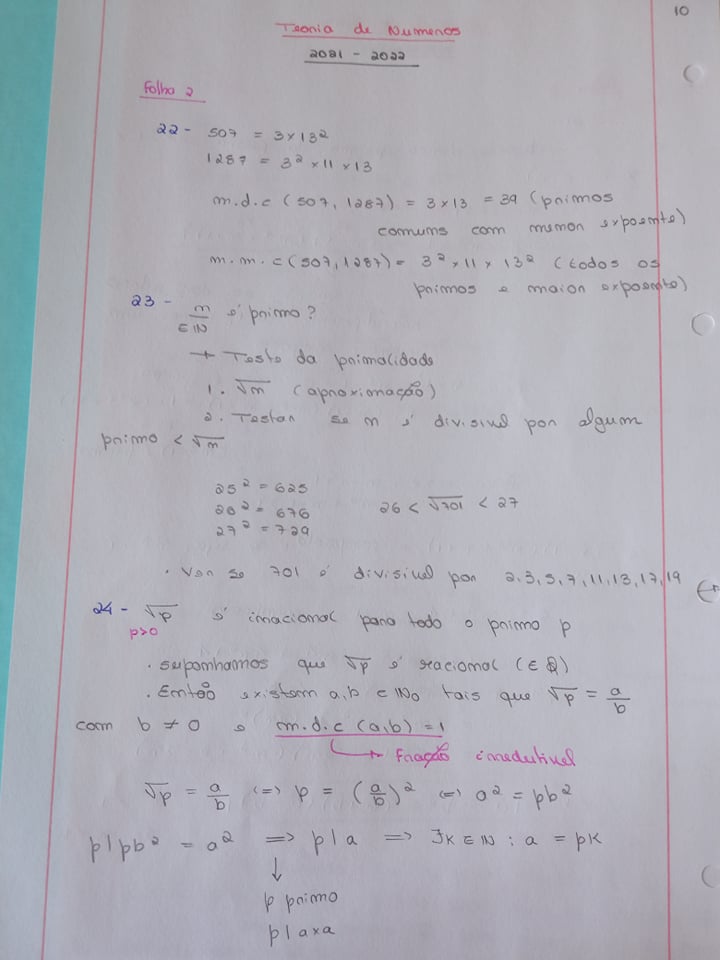 10
Teoria de Numeros
2021 - 2022
Folha 2
22 - 507 = 3 x 13²
1287 = 3² x 11 x 13
m.d.c (507, 1287) = 3 x 13 = 39 (primos
comuns com menor expoente)
m.m.c (507, 1287) = 3² x 11 x 13² (todos os
primos e maior expoente)
23 - m é primo?
∈ IN
→ Teste da primalidade
1. √m (aproximação)
2. Testar se m é divisivel por algum
primo < √m
25² = 625
26² = 676 26 < √701 < 27
27² = 729
. Ver se 701 é divisivel por 2,3,5,7,11,13,17,19
24 - √p é irracional para todo o primo p
p>0
. suponhamos que √p é racional (∈ Q)
. Então existem a,b ∈ INo tais que √p = a/b
com b ≠ 0 e m.d.c (a,b) = 1
→ Fração irredutivel
√p = a/b (=) p = (a/b)² (=) a² = pb²
p | pb² = a² => p | a => ∃k ∈ IN : a = pk
↓
p primo
p | axa